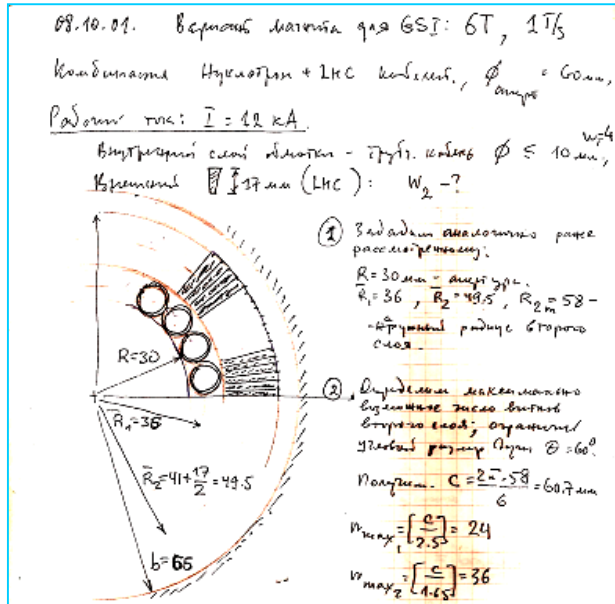 08.10.01. Вариант магнита для GSI: 6T, 1T/s
Комбинация Нуклотрон + LHC кабелей, ϕ апер = 60мм,
Рабочий ток: I = 12 кА.
Внутренний слой обмотки - труб. кабель ϕ ≤ 10 мм, w₁=4
Внешний 17 мм (LHC): W₂ - ?
① Зададим аналогично ранее
рассмотренному:
R = 30 мм - апертура.
R̄₁ = 36, R̄₂ = 49.5, R₂ₘ = 58 -
- наружный радиус второго
слоя.
R=30
R̄₁=36
R̄₂ = 41 + 17/2 = 49.5
b = 66
② Определим максимально
возможное число витков
второго слоя, ограничив
угловой размер дуги θ = 60⁰.
Получим. C = 2π·58/6 = 60.7 мм
n max₁ = [C/2.5] = 24
n max₂ = [C/1.65] = 36